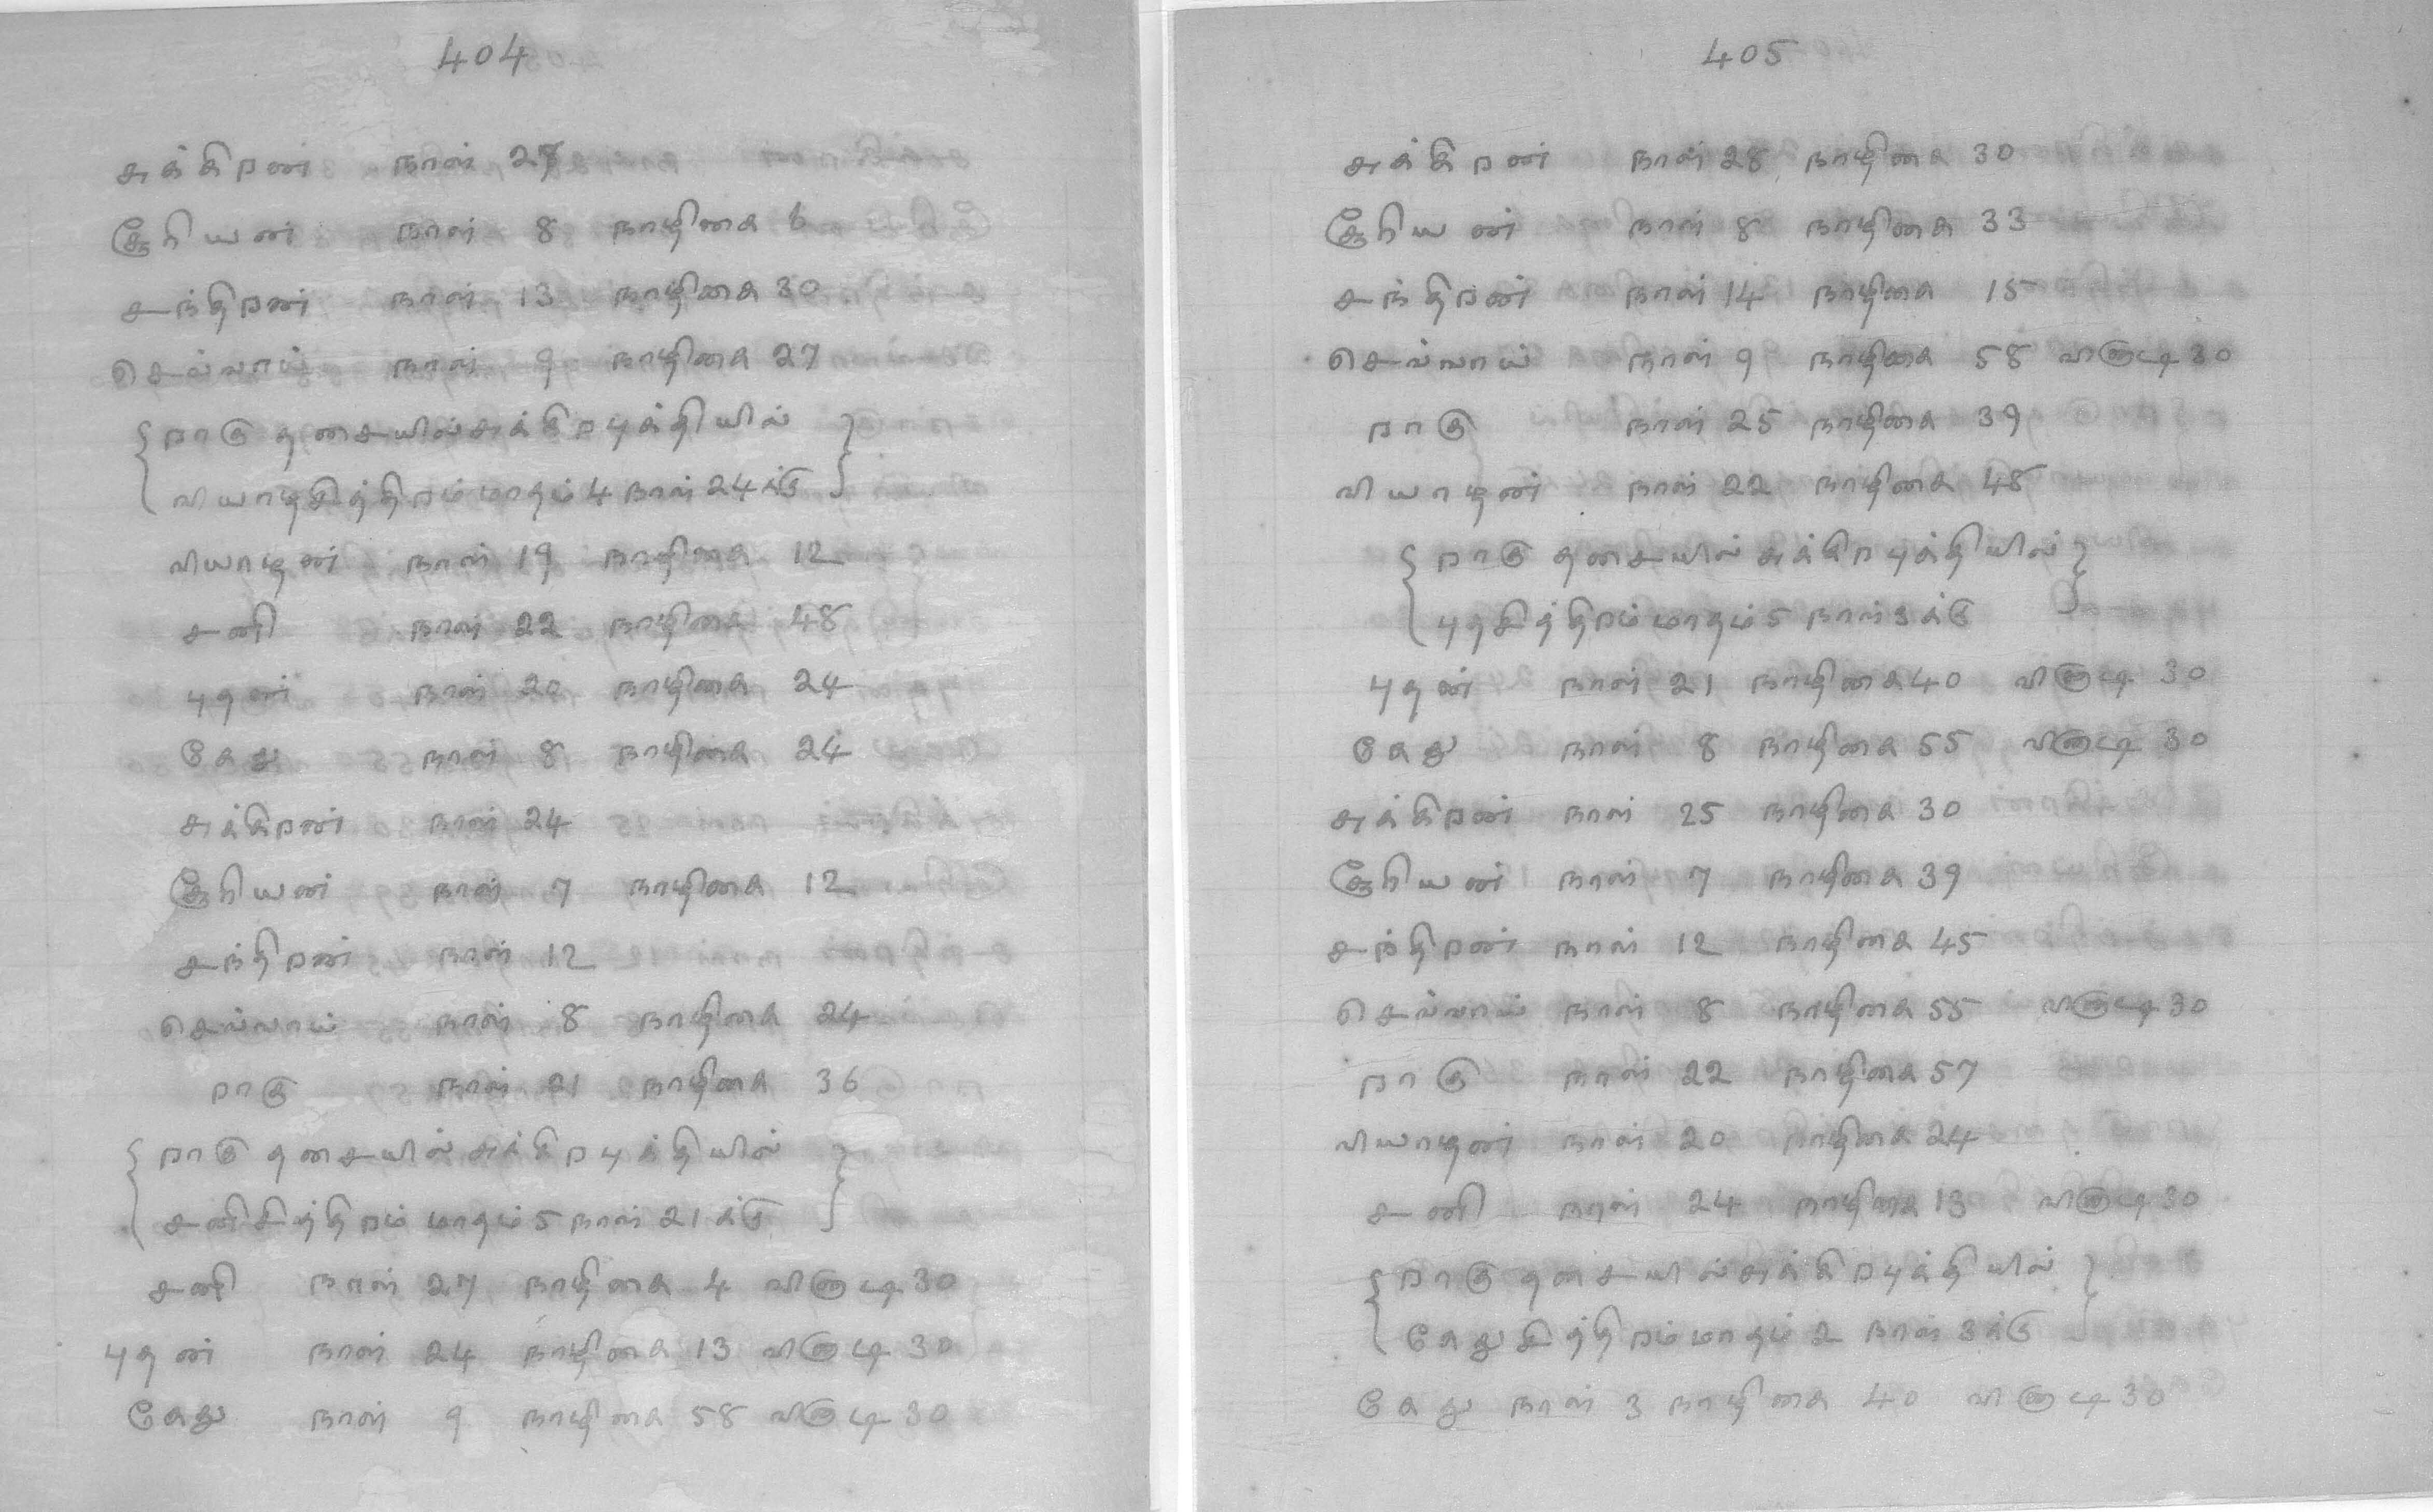 404
சுக்கிறன் நாள் 27
சூரியன் நாள் 8 நாழிகை 6
சந்திறன் நாள் 13 நாழிகை 30
செவ்வாய் நாள் 9 நாழிகை 27
{ றாகு தசையில் சுக்கிறபுத்தியில் }
{ வியாழசித்திறம் மாதம் 4 நாள் 24க்கு }
வியாழன் நாள் 19 நாழிகை 12
சனி நாள் 22 நாழிகை 48
புதன் நாள் 20 நாழிகை 24
கேது நாள் 8 நாழிகை 24
சுக்கிறன் நாள் 24
சூரியன் நாள் 7 நாழிகை 12
சந்திறன் நாள் 12
செவ்வாய் நாள் 8 நாழிகை 24
றாகு நாள் 21 நாழிகை 36
{ றாகு தசையில் சுக்கிறபுக்தியில் }
{ சனிசித்திறம் மாதம் 5 நாள் 21க்கு }
சனி நாள் 27 நாழிகை 4 விகுடி 30
புதன் நாள் 24 நாழிகை 13 விகுடி 30
கேது நாள் 9 நாழிகை 58 விகுடி 30
405
சுக்கிறன் நாள் 28 நாழிகை 30
சூரியன் நாள் 8 நாழிகை 33
சந்திறன் நாள் 14 நாழிகை 15
செவ்வாய் நாள் 9 நாழிகை 58 விகுடி 30
றாகு நாள் 25 நாழிகை 39
வியாழன் நாள் 22 நாழிகை 48
{ றாகு தசையில் சுக்கிறபுக்தியில் }
{ புதசித்திறம் மாதம் 5 நாள் 3க்கு }
புதன் நாள் 21 நாழிகை 40 விகுடி 30
கேது நாள் 8 நாழிகை 55 விகுடி 30
சுக்கிறன் நாள் 25 நாழிகை 30
சூரியன் நாள் 7 நாழிகை 39
சந்திறன் நாள் 12 நாழிகை 45
செவ்வாய் நாள் 8 நாழிகை 55 விகுடி 30
றாகு நாள் 22 நாழிகை 57
வியாழன் நாள் 20 நாழிகை 24
சனி நாள் 24 நாழிகை 13 விகுடி 30
{ றாகு தசையில் சுக்கிறபுக்தியில் }
{ கேதுசித்திறம் மாதம் 2 நாள் 3க்கு }
கேது நாள் 3 நாழிகை 40 விகுடி 30